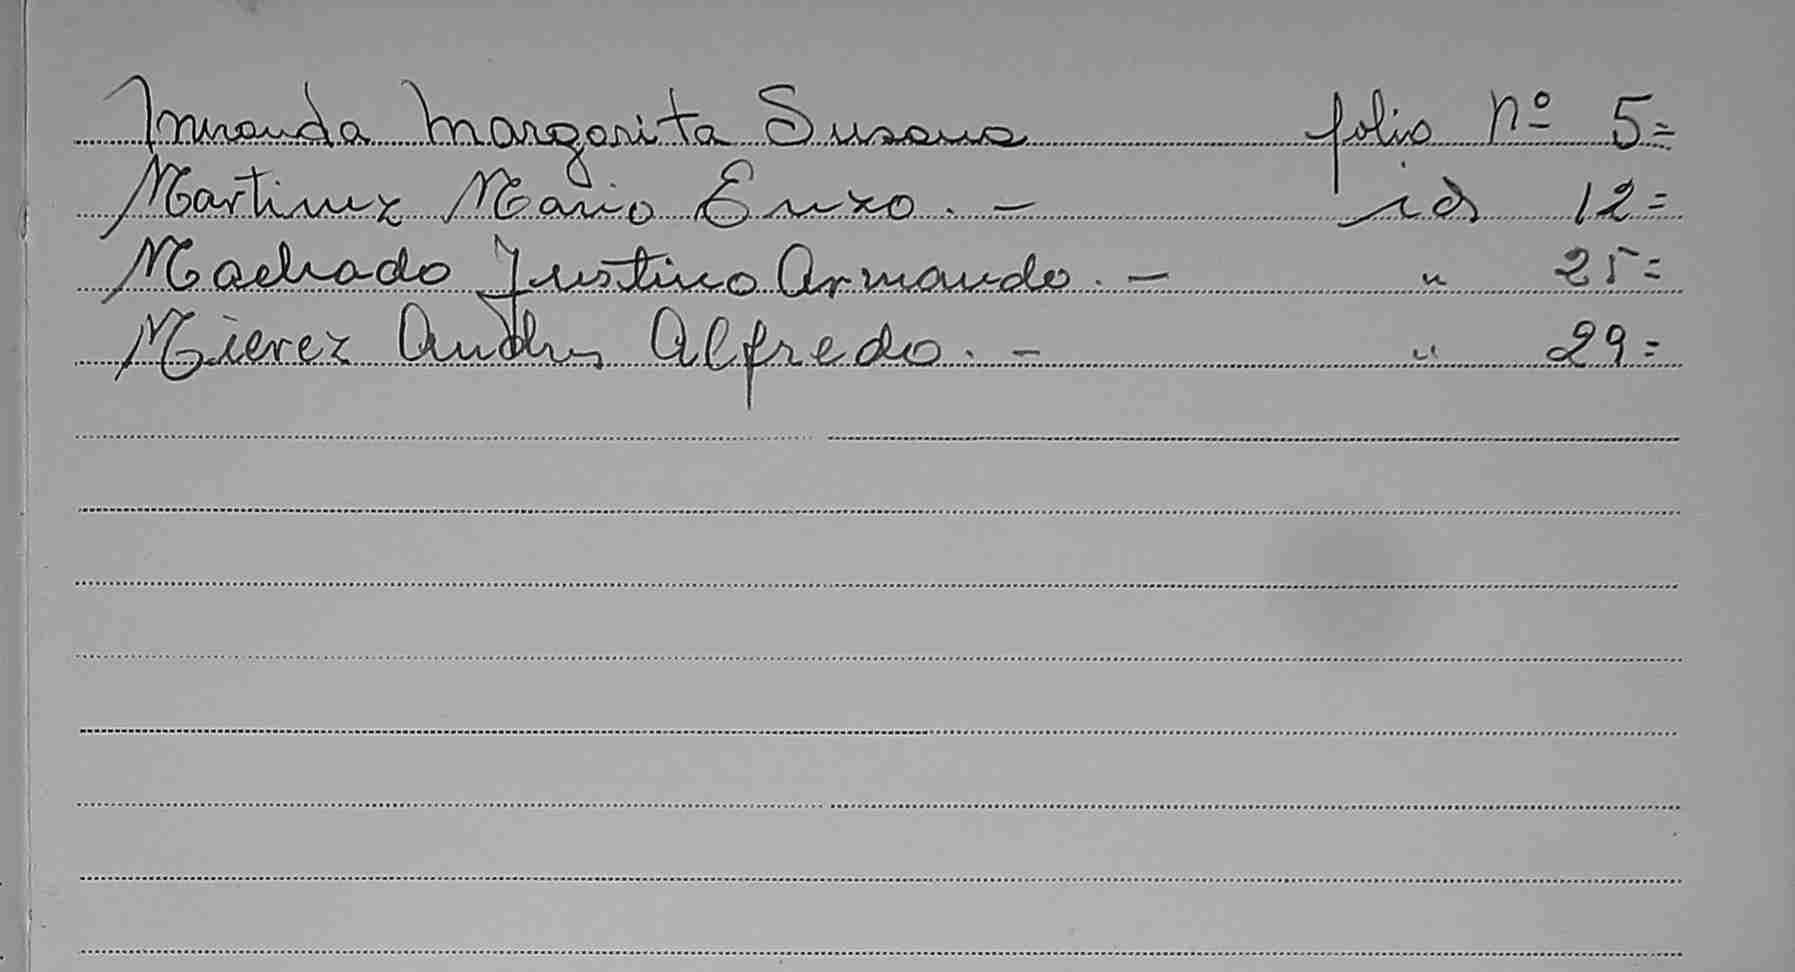 Miranda Margarita Susana folio nº 5=
Martinez Mario Enzo. - id 12=
Machado Justino Armando. - " 25=
Mierez Andres Alfredo. - " 29=